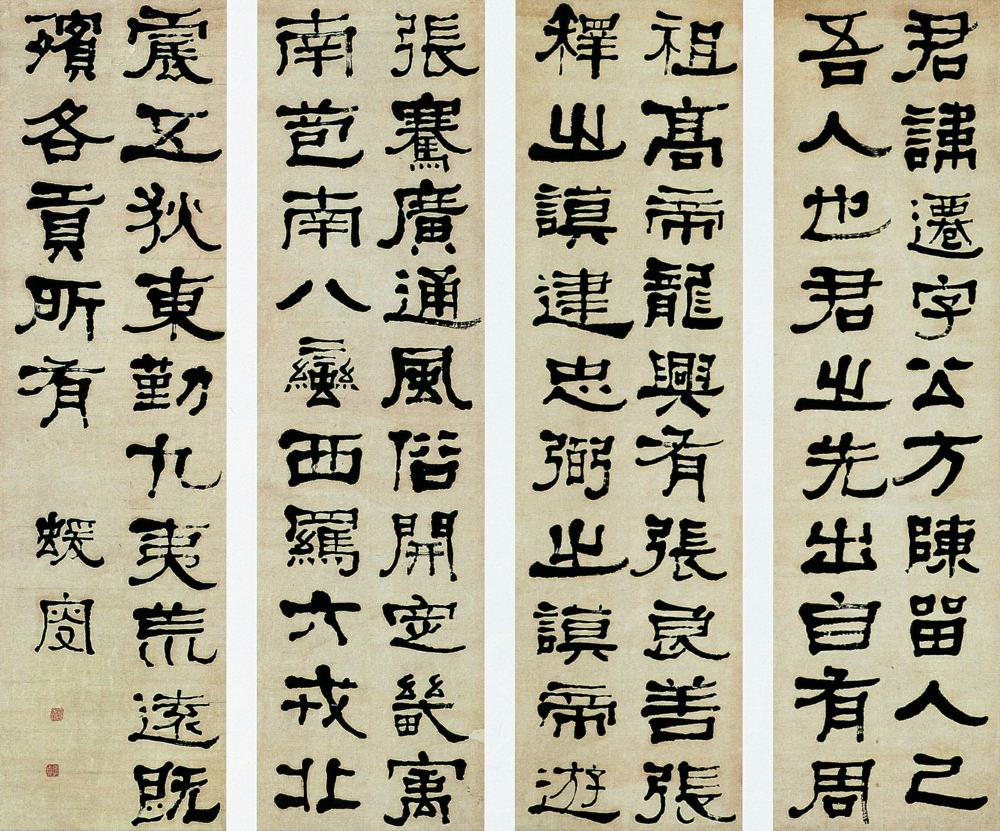 君諱遷字公方陳留人已
吾人也君之先出自有周
祖高帝龍興有張良善張
釋之謨建忠弼之謨帝遊
張騫廣通風俗開定畿寓
南苞南八蠻西羈六戎北
震五狄東勤九夷荒遠既
殯各貢所有 蝯叟